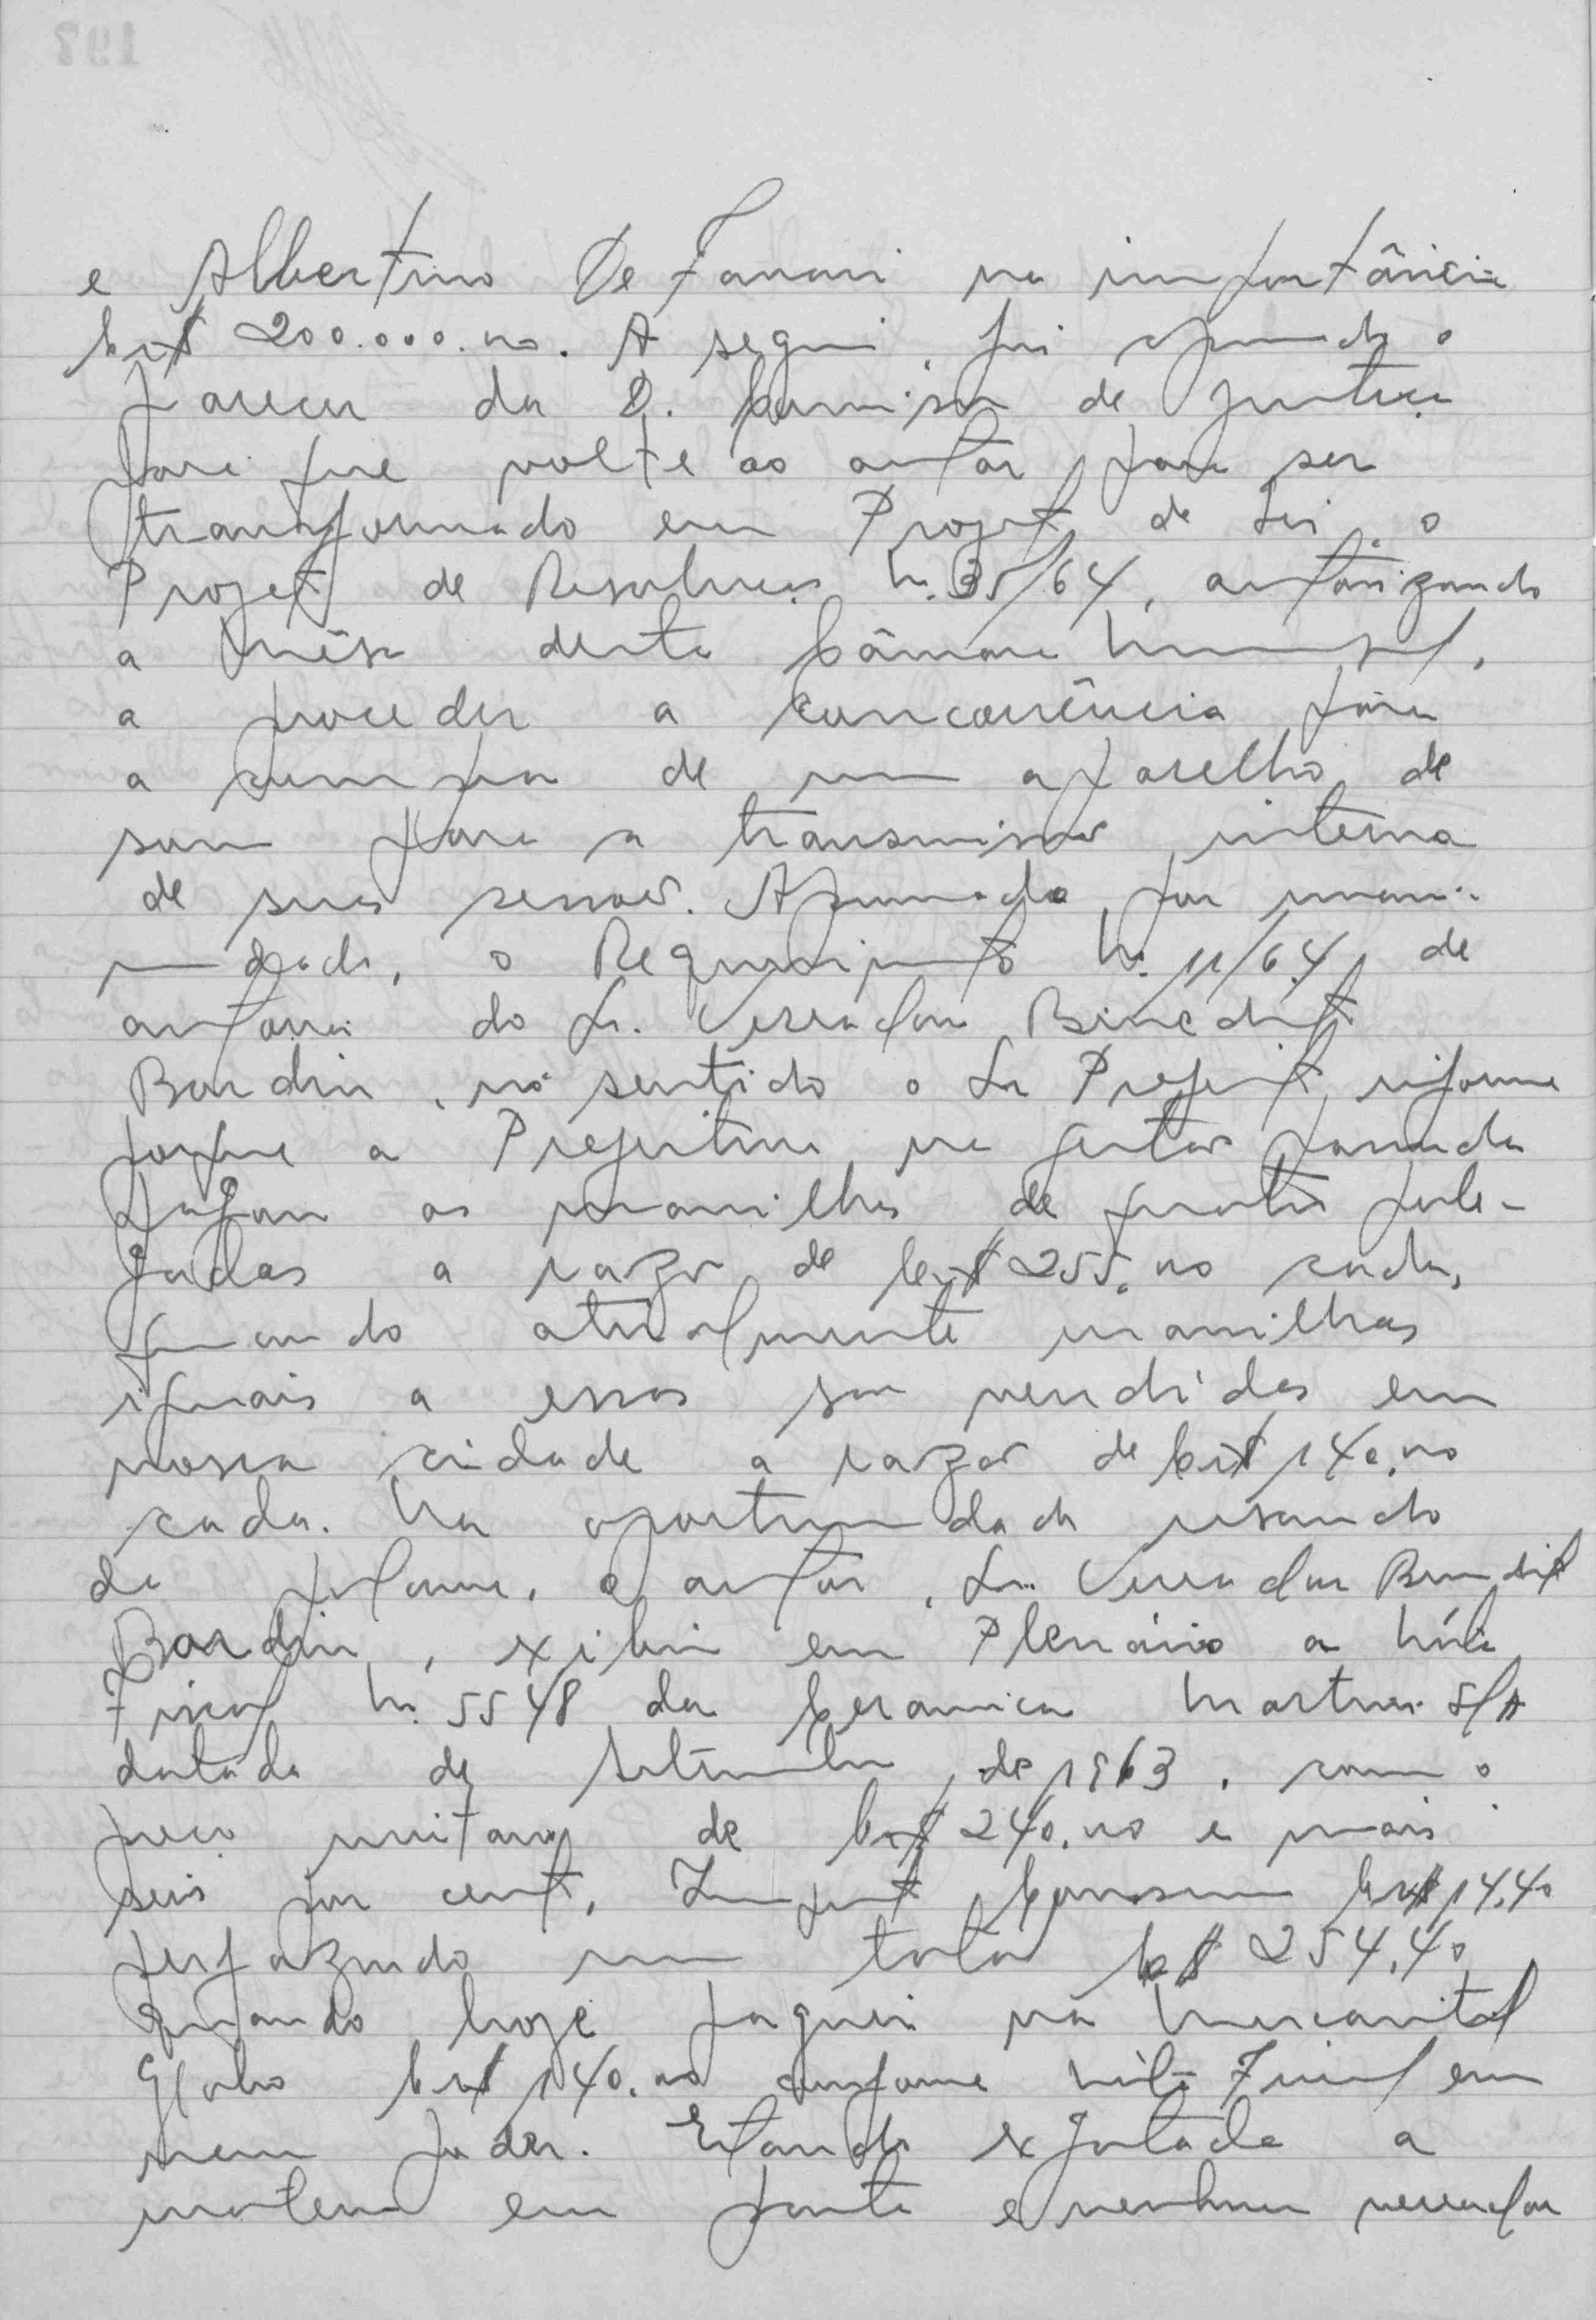 e Albertino De Favari na importância
Cr$ 200.000.00. A seguir, foi aprovado o
parecer da D. Comissão de Justiça
para que volte ao autor para ser
transformado em Projeto de Lei, o
Projeto de Resolução N. 35/64, autorizando
a Mêsa desta Câmara Municipal,
a proceder a concorrência para
a compra de um aparelho de
som para a transmissão interna
de suas sessões. Aprovado por unani-
midade, o Requerimento N. 11/64, de
autoria do Sr. Vereador Benedito
Bardin, no sentido o Sr Prefeito informe
porque a Prefeitura na gestão passada
pagou as manilhas de quatro pole-
gadas a razão de Cr$ 255.00 cada,
quando atualmente manilhas
iguais a essas são vendidas em
nossa cidade a razão de Cr$ 140.00
cada. Na oportunidade usando
da palavra, o autor, Sr. Vereador Benedito
Bardin, exibiu em Plenário a Nóta
Fiscal N. 5548 da Ceramica Martini S/A
datada de Setembro de 1963, com o
preço unitario de Cr$ 240.00 e mais
seis por cento, Imposto Consumo Cr$ 14.40
perfazendo um total Cr$ 254.40
quando hoje paguei na Mercantil
Globo Cr$ 140.00 conforme Nóta Fiscal em
meu poder. Estando exgotada a
materia em pauta e nenhum vereador